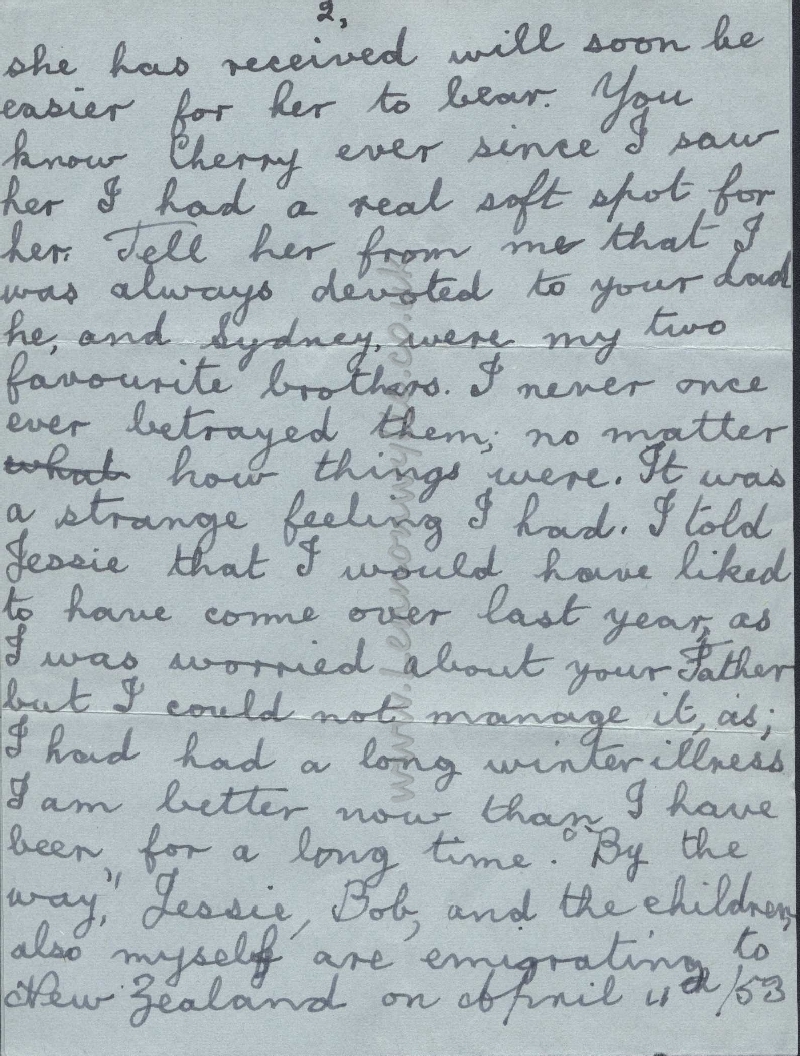 2,
she has received will soon be
easier for her to bear. You
know Cherry ever since I saw
her I had a real soft spot for
her. Tell her from me that I
was always devoted to your dad
he, and Sydney, were my two
favourite brothers. I never once
ever betrayed them; no matter
what how things were. It was
a strange feeling I had. I told
Jessie that I would have liked
to have come over last year, as
I was worried about your Father
but I could not manage it, as;
I had had a long winter illness
I am better now than I have
been for a long time. "By the
way," Jessie, Bob, and the children,
also myself are emigrating to
New Zealand on April 11th/53